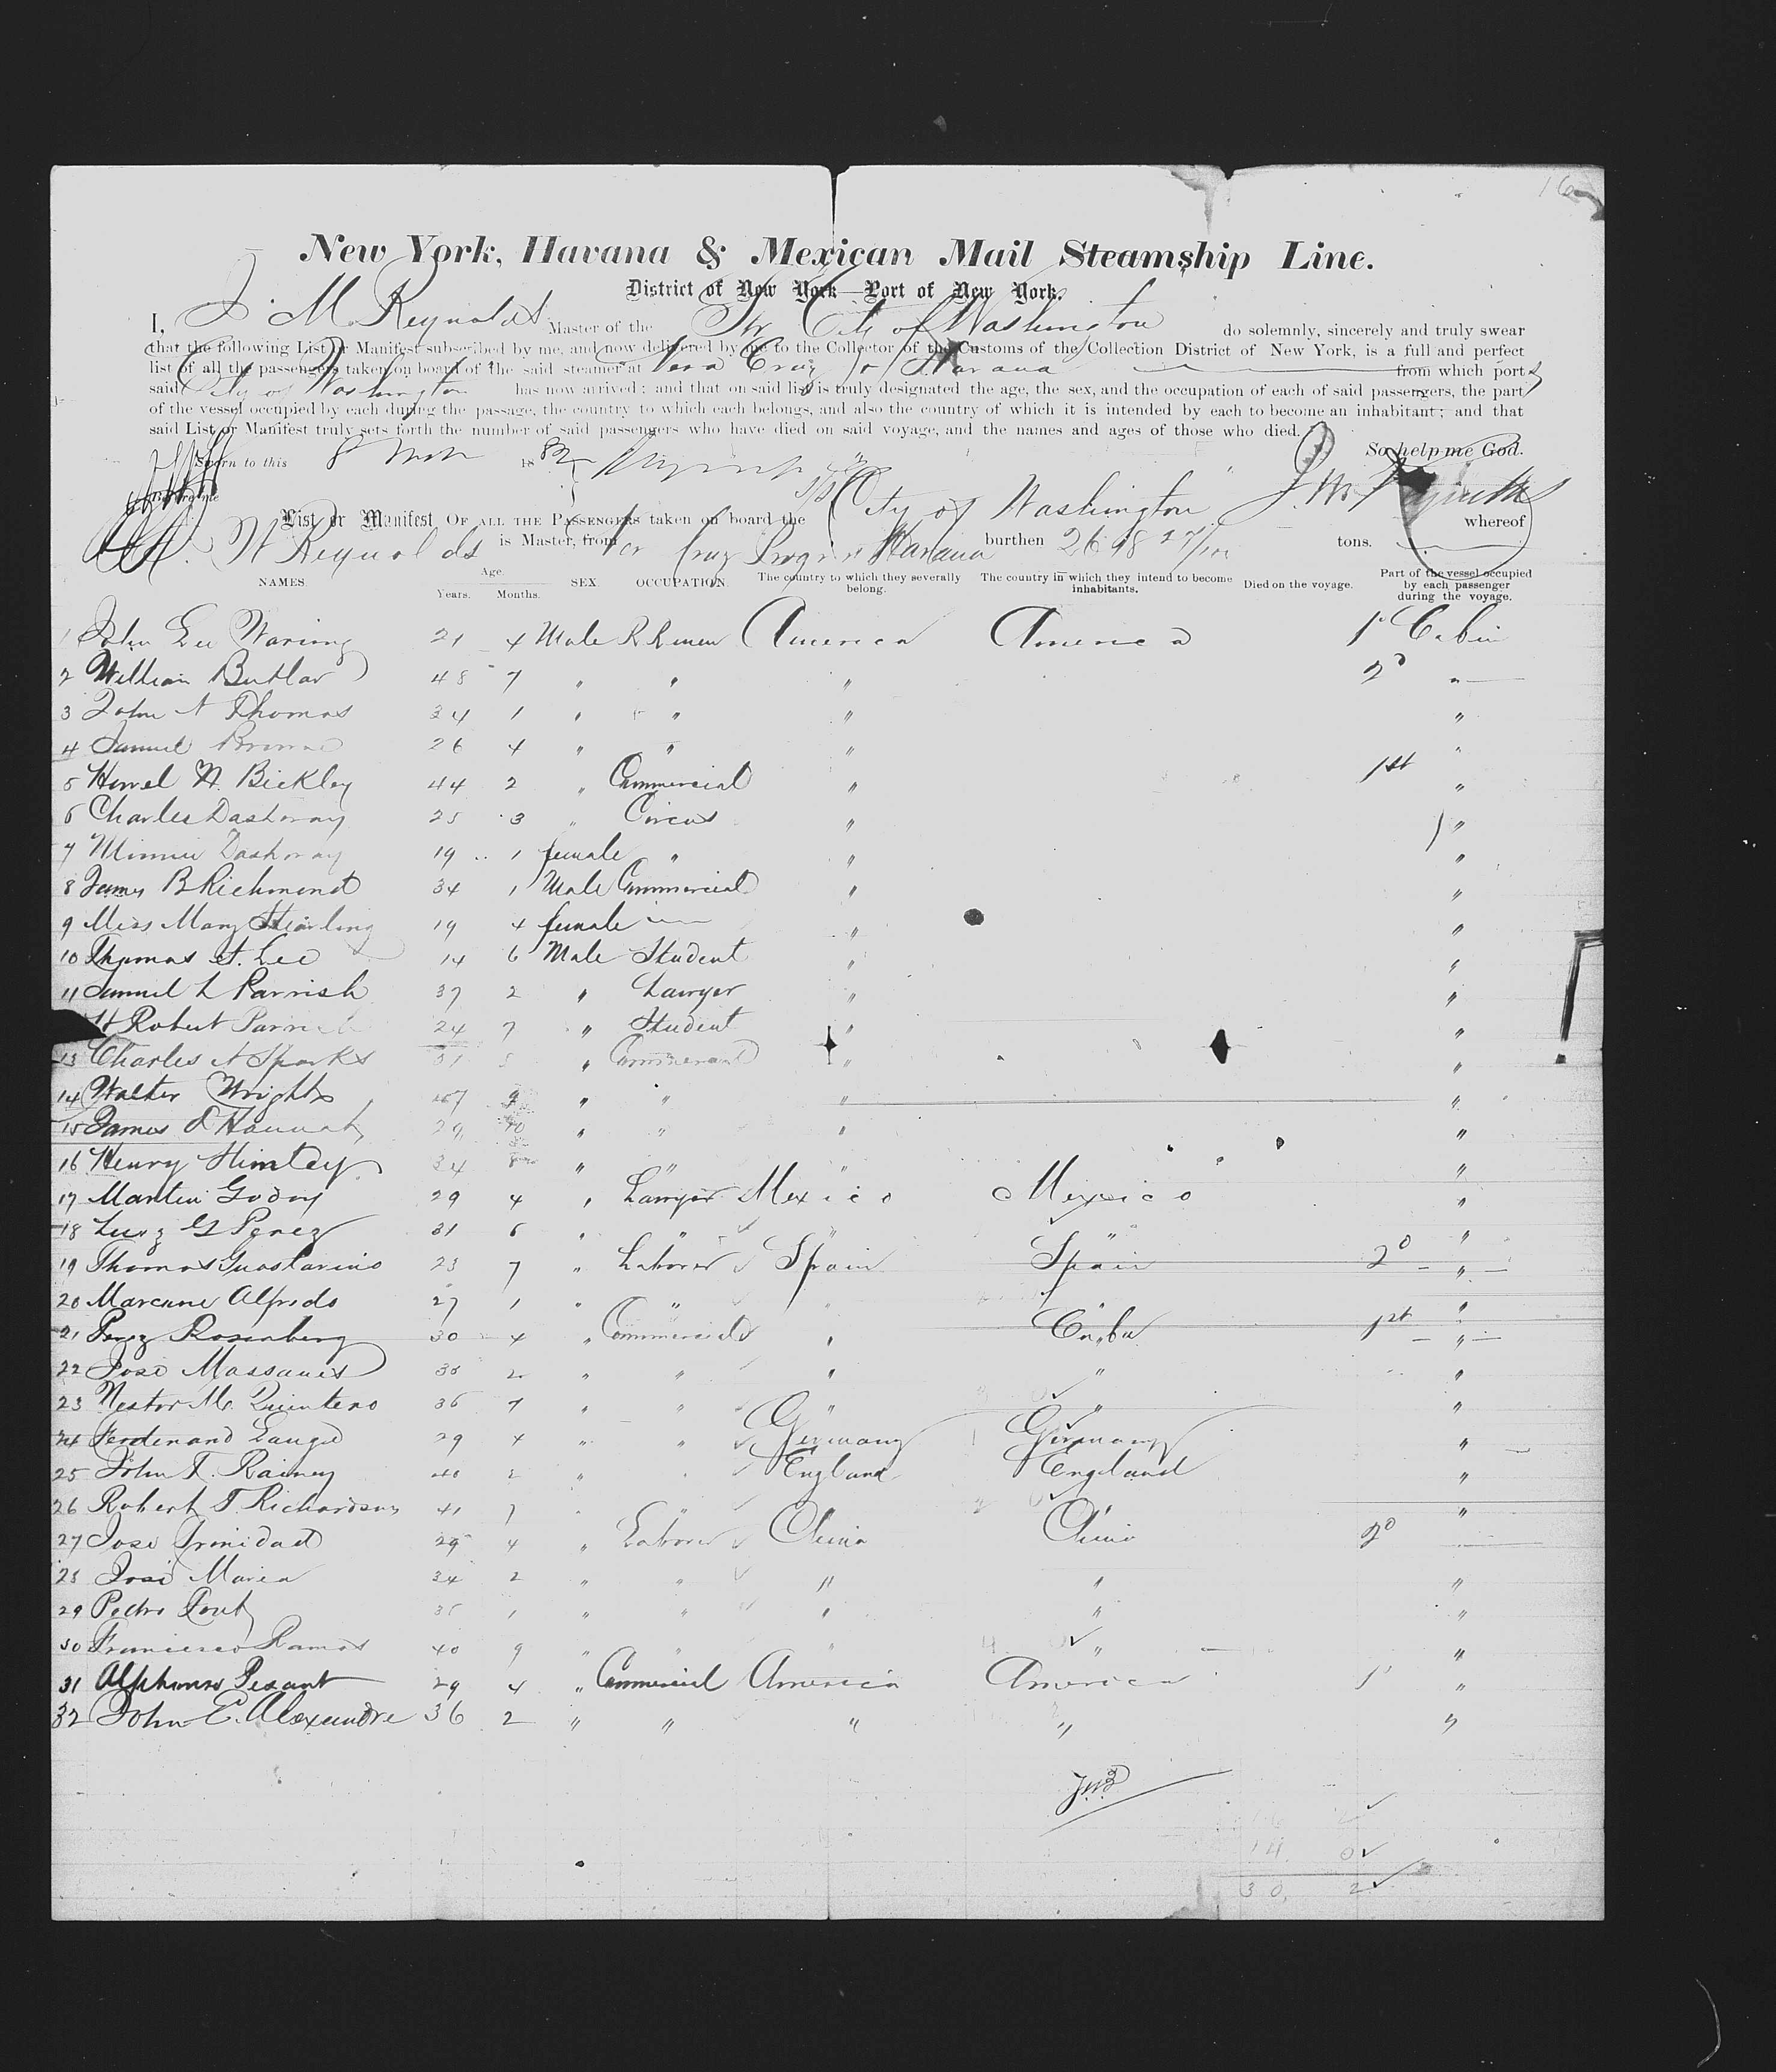 New York, Havana & Mexican Mail Steamship Line.
District of New York—Port of New York.
I, J. M. Reynolds Master of the Str City of Washington do solemnly, sincerely and truly swear
that the following List or Manifest subscribed by me, and now delivered by me to the Collector of the Customs of the Collection District of New York, is a full and perfect
list of all the passengers taken on board of the said steamer at Vera Cruz Havana from which port
said City of Washington has now arrived; and that on said list is truly designated the age, the sex, and the occupation of each of said passengers, the part
of the vessel occupied by each during the passage, the country to which each belongs, and also the country of which it is intended by each to become an inhabitant; and that
said List or Manifest truly sets forth the number of said passengers who have died on said voyage, and the names and ages of those who died.
So help me God.
Sworn to this 8 1882
Before me
List or Manifest OF ALL THE PASSENGERS taken on board the S/S City of Washington whereof
W Reynolds is Master, from Ver Cruz Havana burthen 2618 27/100 tons.
NAMES. Age. Years. Months. SEX. OCCUPATION. The country to which they severally belong. The country in which they intend to become inhabitants. Died on the voyage. Part of the vessel occupied by each passenger during the voyage.
1 John Lee Waring 21 4 Male America America 1st Cabin
2 William Butlar 48 7 " " " 2d "
3 John A Thomas 34 1 " " " "
4 Samuel 26 4 " " " "
5 Howel W. Bickley 44 2 " Commercial " 1st "
6 Charles Dashway 25 3 " Circus " "
7 Minnie Dashway 19 1 female " " "
8 James B Richmond 34 1 Male Commercial " "
9 Miss Mary Stearling 19 4 female " "
10 Thomas S. Lee 14 6 Male Student " "
11 Samuel L Parrish 37 2 " Lawyer " "
H Robert Parrish 24 7 " Student " "
13 Charles A Sparks 31 " Commercial " "
14 Walter Wright 9 " " " "
15 James Hannah 29 10 " " " "
16 Henry 34 8 " " " "
17 Martin Godoy 29 4 " Lawyer Mexico Mexico "
18 Luiz G Perez 31 6 " " " " "
19 Thomas Guastavino 23 7 " Laborer Spain Spain 2d "
20 Alfredo 27 1 " " " " "
21 Perez Rosenberg 30 4 " Commercial " Cuba 1st "
22 Jose Massanes 38 2 " " " " "
23 Nestor M. Quintero 36 7 " " " " "
24 Ferdenand 29 4 " " Germany Germany "
25 John T. Rainey 40 2 " " England England "
26 Robert T Richardson 41 7 " " "
27 Jose Trinidad 29 4 " Laborer China China 2d
28 José Maria 34 2 " " " " "
29 Pedro 35 1 " " " " "
30 Francisco Ramos 40 9 " " " " "
31 Alphonso Pesant 29 4 " Commercial America America 1st "
32 John E. Alexandre 36 2 " " " " "
14 0
30, 2